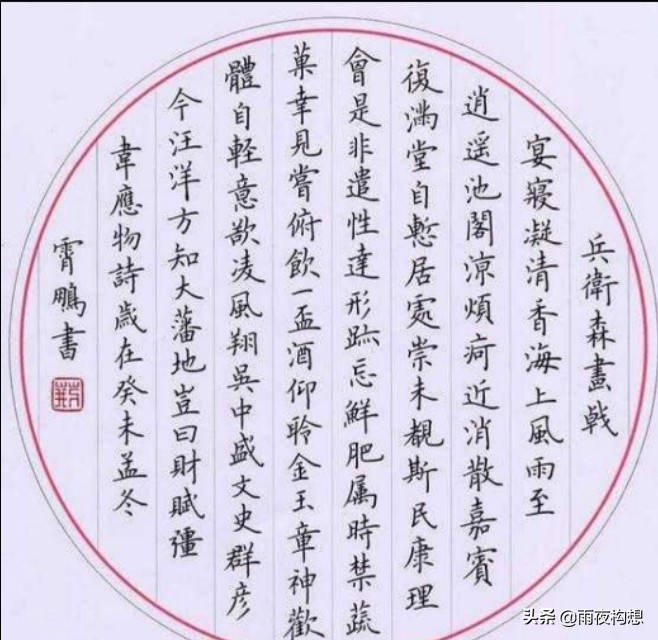 兵衛森畫戟
宴寢凝清香海上風雨至
逍遥池閣涼煩疴近消散嘉賓
復滿堂自慙居處崇未覩斯民康理
會是非遣性達形跡忘鮮肥属時禁蔬
菓幸見嘗俯飲一盃酒仰聆金玉章神歡
體自軽意欲凌風翔吳中盛文史群彦
今汪洋方知大藩地豈曰財賦彊
韋應物詩歲在癸未孟冬
霄鵬書
头条 @雨夜构想